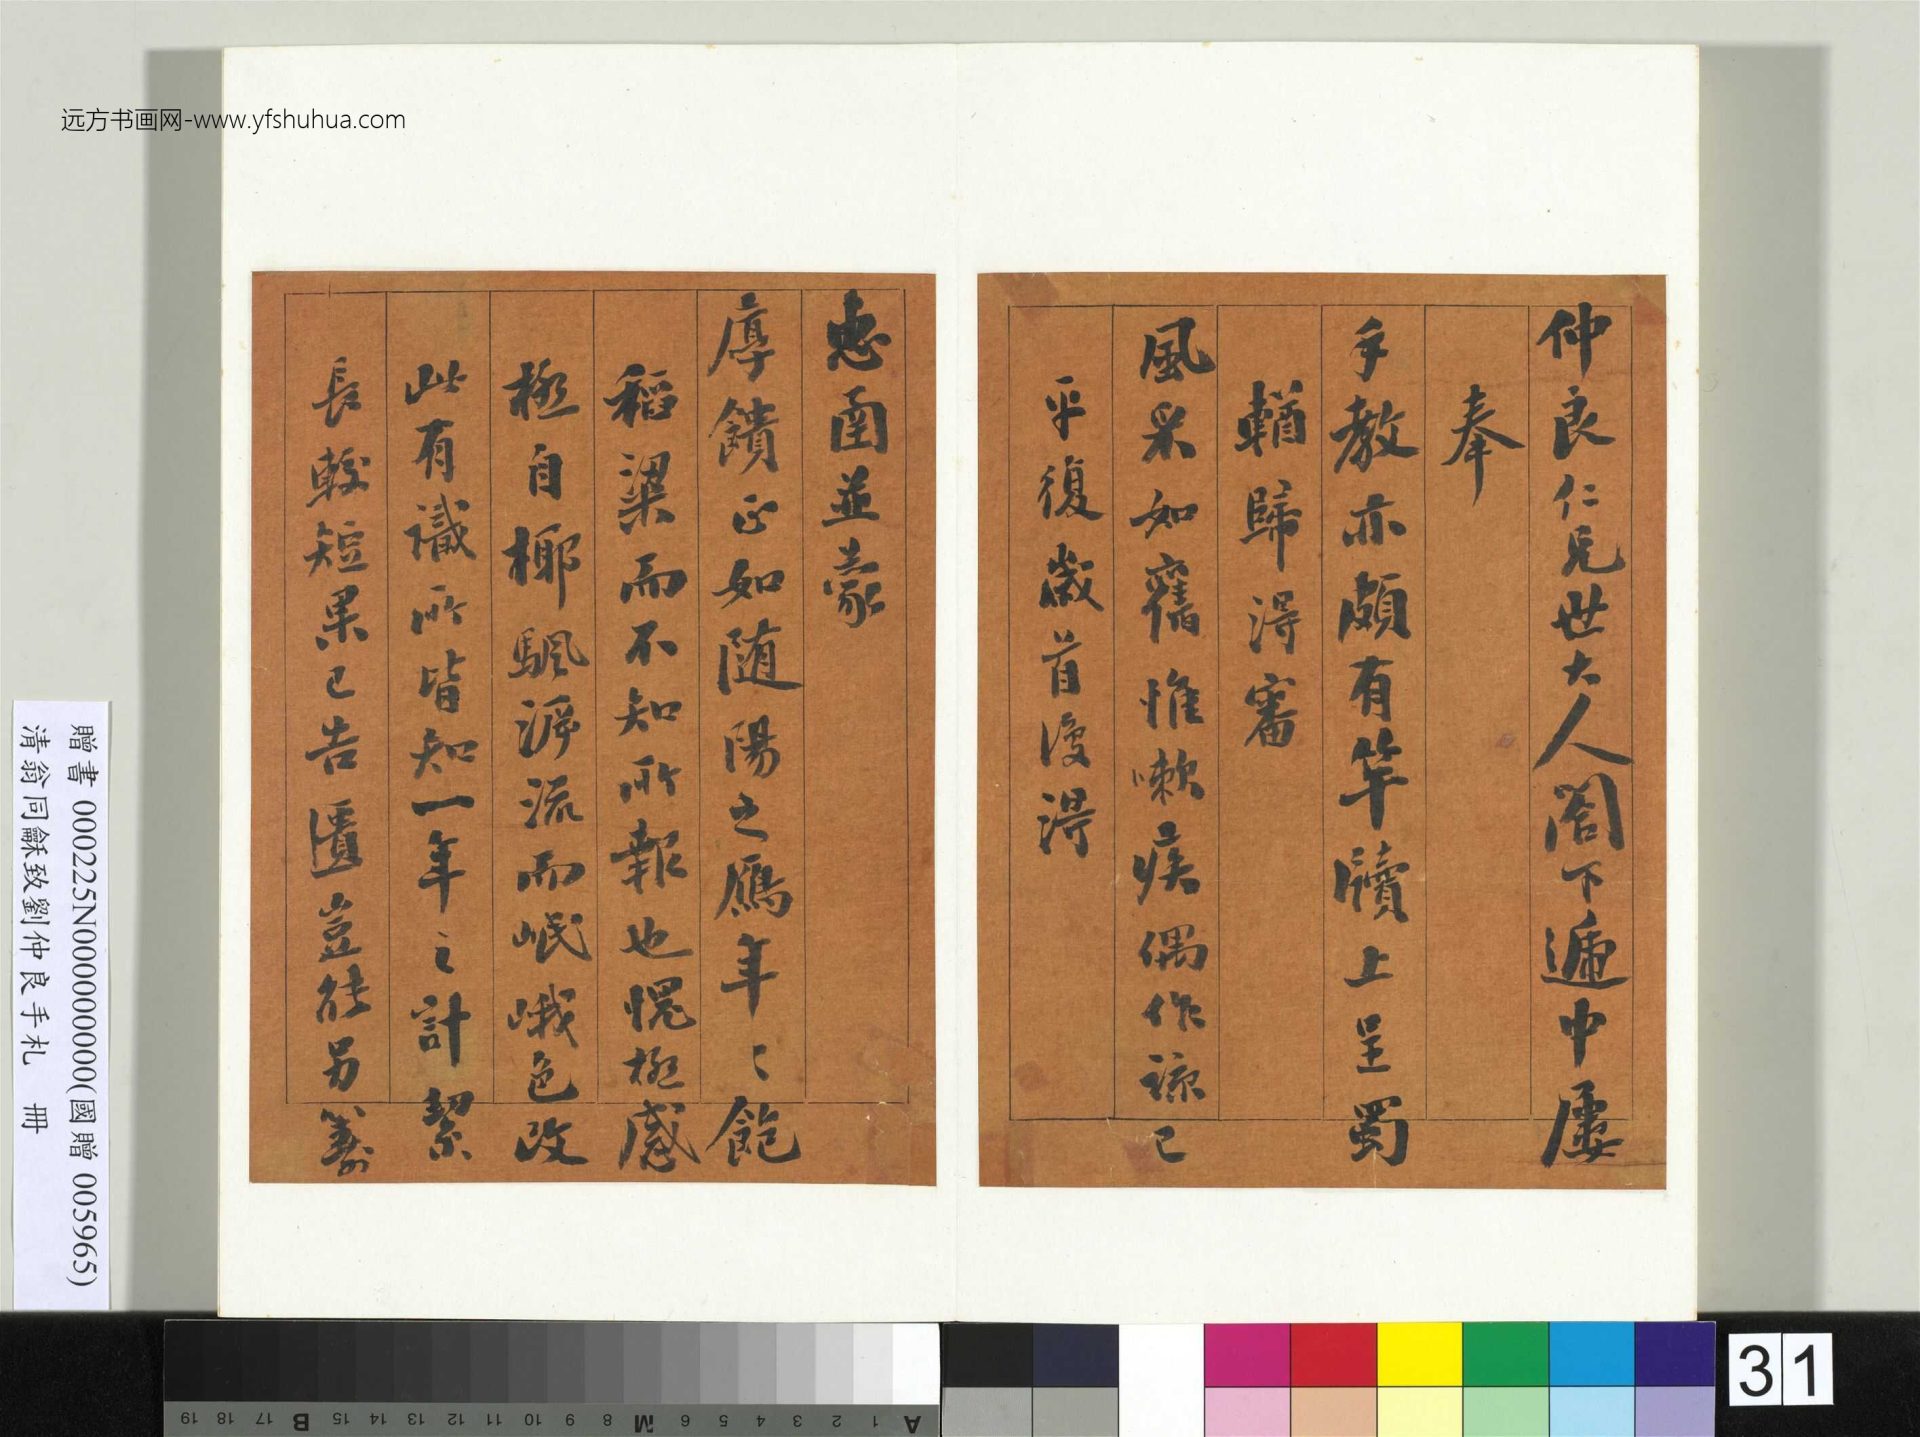 远方书画网-www.yfshuhua.com
仲良仁兄世大人閣下遞中屢
奉
手教亦頗有竿牘上呈蜀
輶歸得審
風采如舊惟嗽疾偶作諒已
平復歲首復得
惠函並蒙
厚饋正如随陽之鴈年〻飽
稻粱而不知所報也愧極感
極自椰颿游流而岷峨色改
此有識所皆知一年之計絜
長較短果已告匱豈能另籌
贈書 000225N000000000(國贈 005965)
清翁同龢致劉仲良手札 冊
19 18 17 B 16 15 14 13 12 11 10 9 8 M 7 6 5 4 3 2 1 A
31